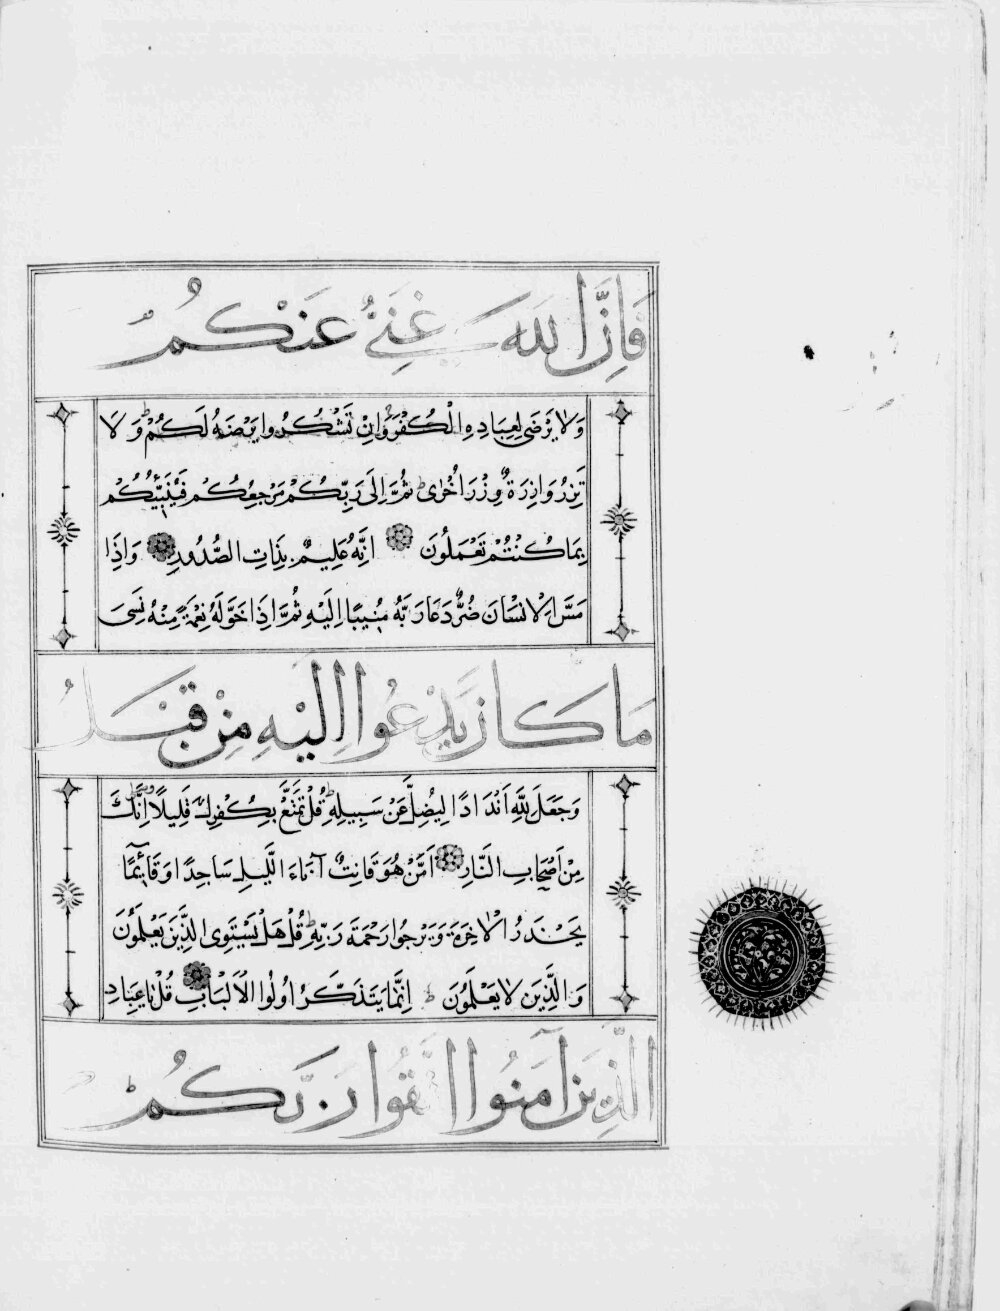 فَاِنَّ اللهَ غَنِىٌّ عَنْكُمْ
وَلَا يَرْضَى لِعِبَادِهِ الْكُفْرَ وَاِنْ تَشْكُرُوا يَرْضَهُ لَكُمْ ط وَلَا
تَزِرُ وَازِرَةٌ وِزْرَ اُخْرٰى ط ثُمَّ اِلَى رَبِّكُمْ مَرْجِعُكُمْ فَيُنَبِّئُكُمْ
بِمَا كُنْتُمْ تَعْمَلُونَ اِنَّهُ عَلِيمٌ بِذَاتِ الصُّدُورِ وَاِذَا
مَسَّ الْاِنْسَانَ ضُرٌّ دَعَا رَبَّهُ مُنِيبًا اِلَيْهِ ثُمَّ اِذَا خَوَّلَهُ نِعْمَةً مِنْهُ نَسِىَ
مَا كَانَ يَدْعُوا اِلَيْهِ مِنْ قَبْلُ
وَجَعَلَ لِلّٰهِ اَنْدَادًا لِيُضِلَّ عَنْ سَبِيلِهِ ط قُلْ تَمَتَّعْ بِكُفْرِكَ قَلِيلًا اِنَّكَ
مِنْ اَصْحَابِ النَّارِ اَمَّنْ هُوَ قَانِتٌ آنَاءَ الَّيْلِ سَاجِدًا وَقَائِمًا
يَحْذَرُ الْاٰخِرَةَ وَيَرْجُوا رَحْمَةَ رَبِّهِ ط قُلْ هَلْ يَسْتَوِى الَّذِينَ يَعْلَمُونَ
وَالَّذِينَ لَا يَعْلَمُونَ ط اِنَّمَا يَتَذَكَّرُ اُولُوا الْاَلْبَابِ قُلْ يَا عِبَادِ
الَّذِينَ آمَنُوا اتَّقُوا رَبَّكُمْ ط